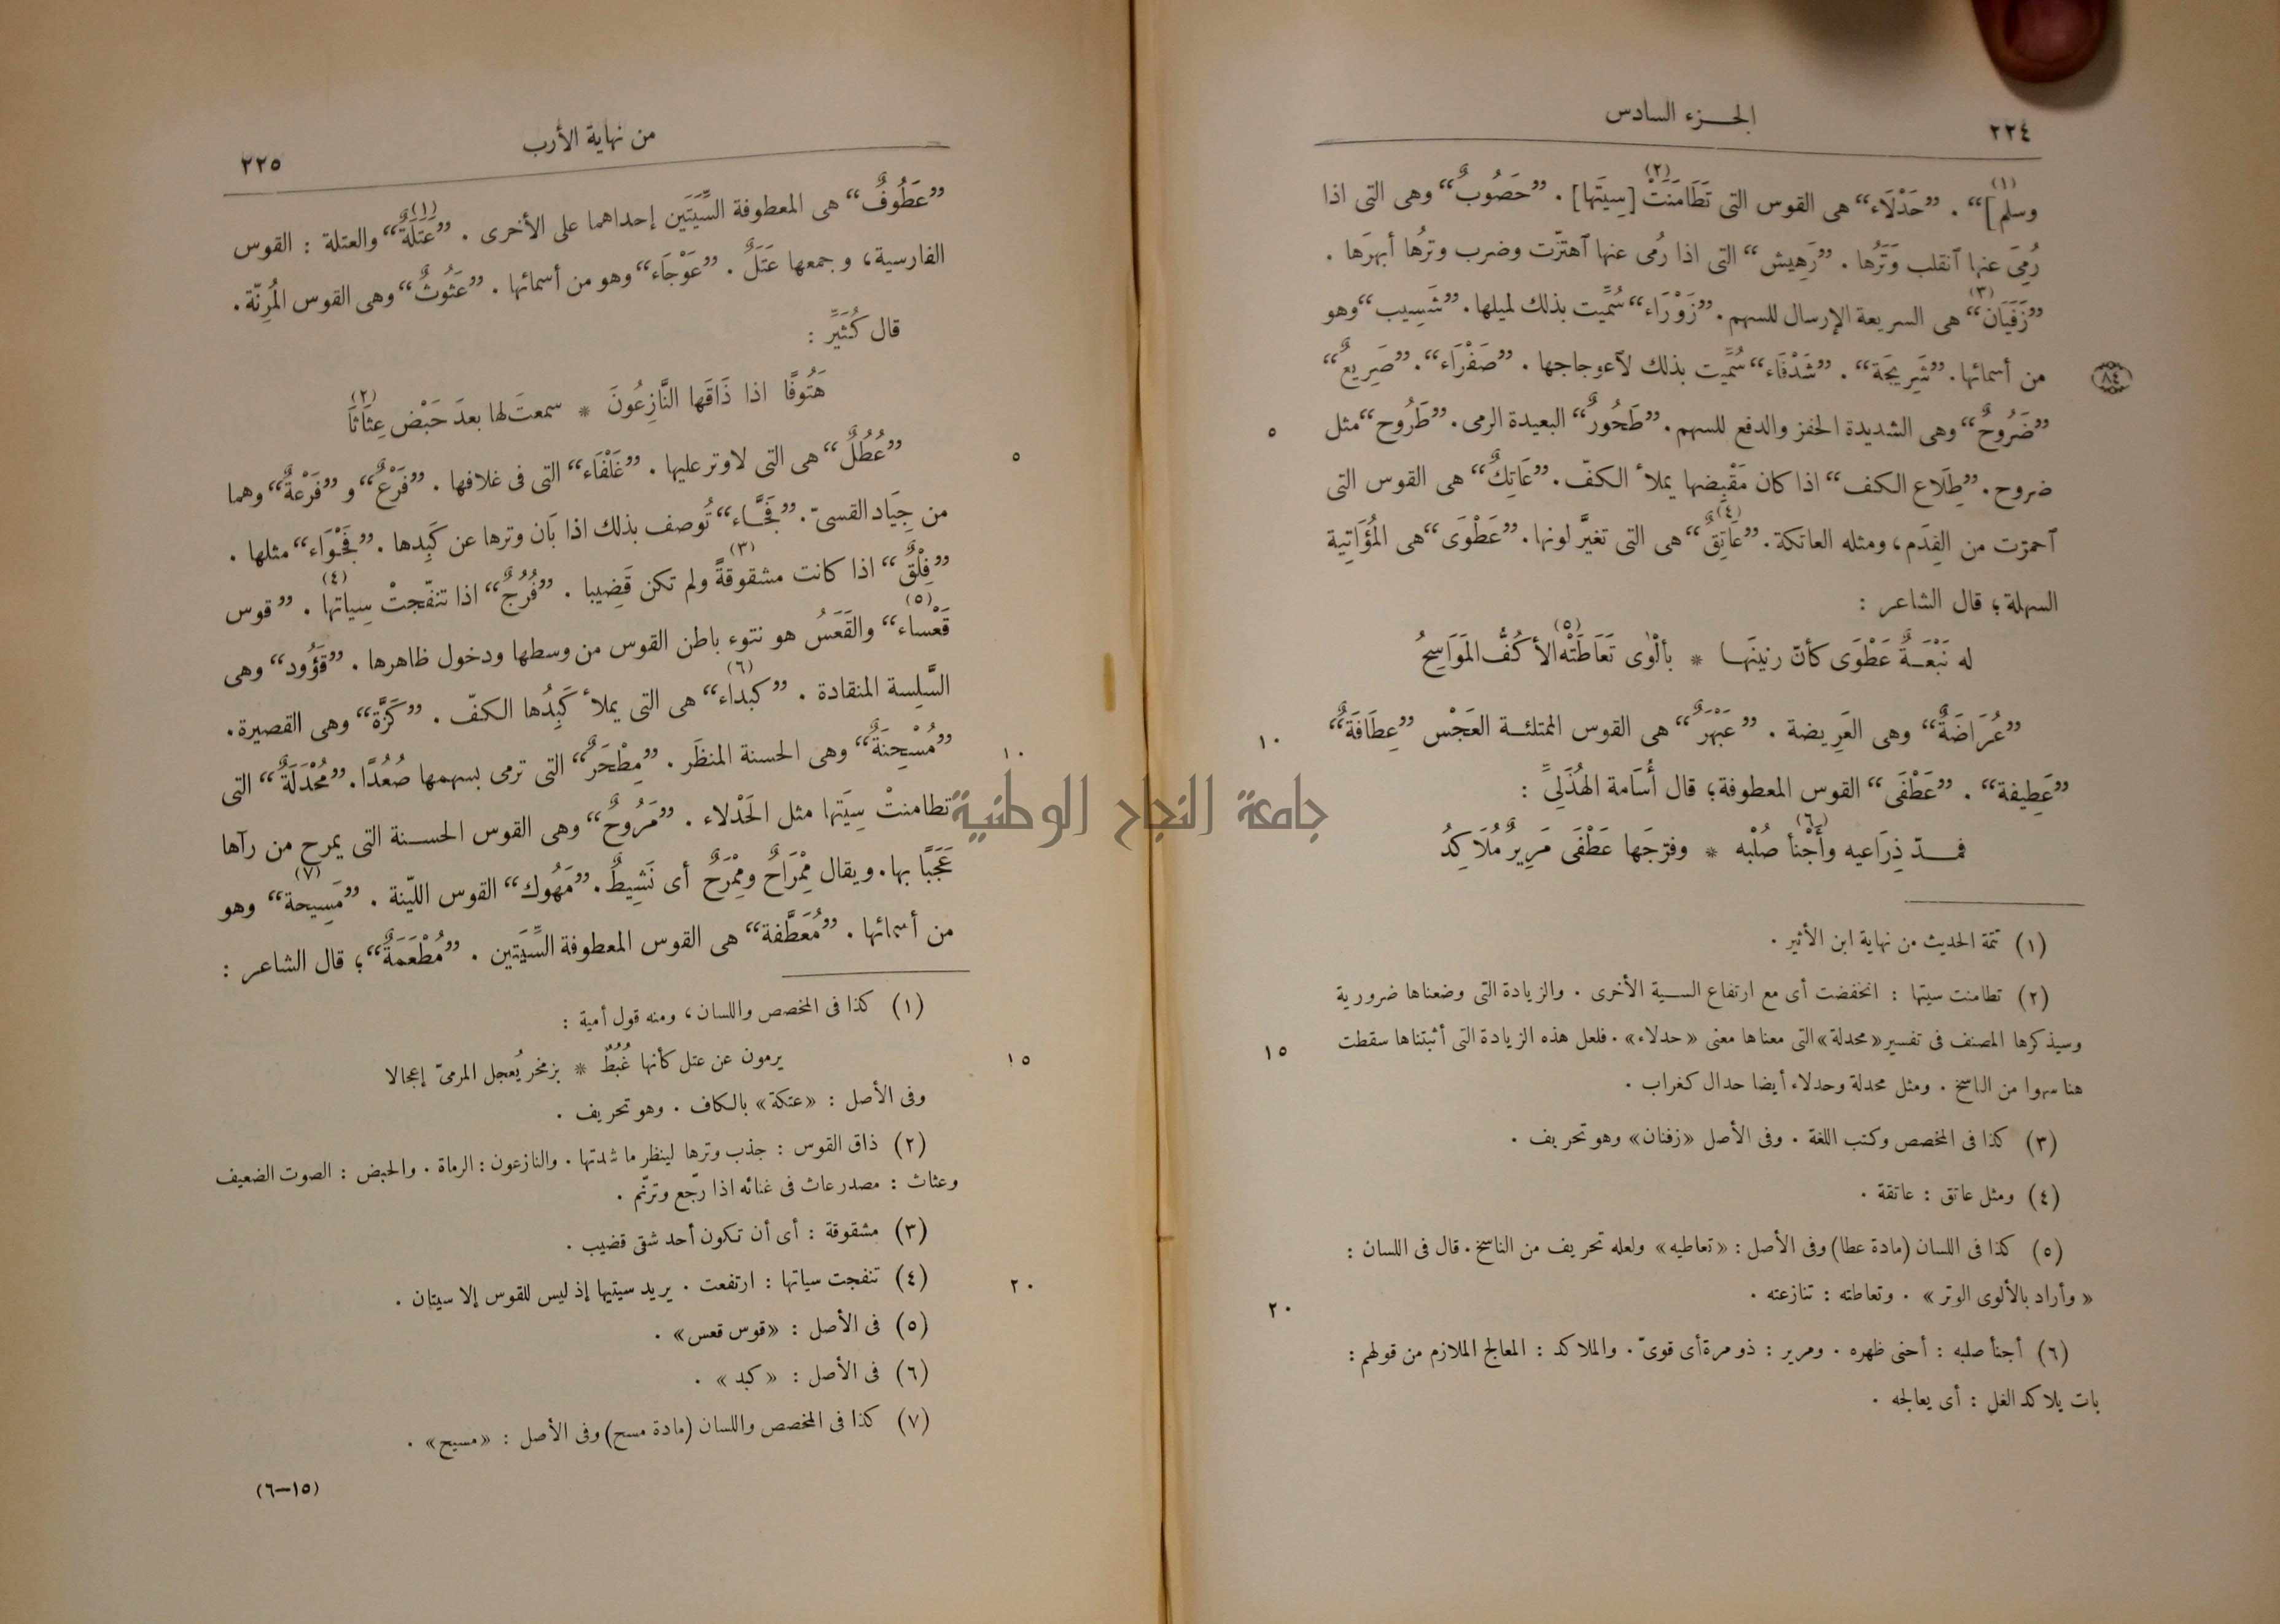 ٢٢٤
الجزء السادس
وسلم]“ . ”حَدْلَاء“ هى القوس التى تَطَامَنَتْ(٢) [سِيَتُها](١) . ”حَصُوبٌ“ وهى التى اذا
رُمِىَ عنها آنقلب وَتَرُها . ”رَهِيش“ التى اذا رُمى عنها آهتزّت وضرب وترُها أبهرَها .
”زَفَيَان(٣)“ هى السريعة الإرسال للسهم . ”زَوْرَاء“ سُمِّيت بذلك لميلها . ”شَسِيب“ وهو
من أسمائها . ”شَرِيجَة“ . ”شَدْفَاء“ سُمِّيت بذلك لآعوجاجها . ”صَفْرَاء“ . ”صَرِيعٌ“
٨٤
”ضَرُوحٌ“ وهى الشديدة الحفز والدفع للسهم . ”طَحُورٌ“ البعيدة الرمى . ”طَرُوح“ مثل
٥
ضروح . ”طِلَاع الكف“ اذا كان مَقْبِضها يملأ الكفّ . ”عَاتِكٌ“ هى القوس التى
آحمرّت من القِدَم، ومثله العاتكة . ”عَاتِقٌ(٤)“ هى التى تغيَّر لونها . ”عَطْوَى“ هى المُؤَاتِية
السهلة؛ قال الشاعر :
له نَبْعَــةٌ عَطْوَى كأنّ رنينَهــا * بألْوٰى تَعَاطَتْه(٥) الأكُفُّ المَوَاسِحُ
”عُرَاضَةٌ“ وهى العَرِيضة . ”عَبْهَرٌ“ هى القوس الممتلئة العَجْس ”عِطَافَةٌ“
١٠
”عَطِيفة“ . ”عَطْفَى“ القوس المعطوفة؛ قال أُسَامة الهُذَلِىّ :
فمــدّ ذِرَاعيه وأَجْنأ(٦) صُلْبه * وفرّجَها عَطْفَى مَرِيرٌ مُلَاكِدُ
(١) تتمة الحديث من نهاية ابن الأثير .
(٢) تطامنت سيتها : انخفضت أى مع ارتفاع السية الأخرى . والزيادة التى وضعناها ضرورية
وسيذكرها المصنف فى تفسير «محدلة» التى معناها معنى «حدلاء» . فلعل هذه الزيادة التى أثبتناها سقطت
١٥
هنا سهوا من الناسخ . ومثل محدلة وحدلاء أيضا حدال كغراب .
(٣) كذا فى المخصص وكتب اللغة . وفى الأصل «زفنان» وهو تحريف .
(٤) ومثل عاتق : عاتقة .
(٥) كذا فى اللسان (مادة عطا) وفى الأصل : «تعاطيه» ولعله تحريف من الناسخ . قال فى اللسان :
«وأراد بالألوى الوتر» . وتعاطته : تنازعته .
٢٠
(٦) أجنأ صلبه : أحنى ظهره . ومرير : ذو مرة أى قوىّ . والملاكد : المعالج الملازم من قولهم :
بات يلاكد الغل : أى يعالجه .
من نهاية الأرب
٢٢٥
”عَطُوفٌ“ هى المعطوفة السِّيَتَين إحداهما على الأخرى . ”عَتَلَةٌ(١)“ والعتلة : القوس
الفارسية، وجمعها عَتَلٌ . ”عَوْجَاء“ وهو من أسمائها . ”عَثُوثٌ“ وهى القوس المُرِنّة .
قال كُثَيِّر :
هَتُوفًا اذا ذَاقَها النَّازِعُونَ * سمعتَ لها بعدَ حَبْض عِثَاثَا(٢)
”عُطُلٌ“ هى التى لاوتر عليها . ”غَلْفَاء“ التى فى غلافها . ”فَرْعٌ“ و ”فَرْعَةٌ“ وهما
٥
من جِيَاد القسىّ . ”فَجَّاء“ تُوصف بذلك اذا بَان وترها عن كَبِدها . ”فَجْوَاء“ مثلها .
”فِلْقٌ“ اذا كانت مشقوقةً(٣) ولم تكن قَضِيبا . ”فُرُجٌ“ اذا تنفّجتْ سِياتها(٤) . ”قوس
قَعْساء(٥)“ والقَعَسُ هو نتوء باطن القوس من وسطها ودخول ظاهرها . ”قَؤُود“ وهى
السَّلِسة المنقادة . ”كبداء(٦)“ هى التى يملأ كَبِدُها الكفّ . ”كَزَّة“ وهى القصيرة .
”مُسْحِنَةٌ“ وهى الحسنة المنظَر . ”مِطْحَرٌ“ التى ترمى بسهمها صُعُدًا . ”مُحْدَلَةٌ“ التى
١٠
تطامنتْ سِيَتها مثل الحَدْلاء . ”مَرُوحٌ“ وهى القوس الحســنة التى يمرح من رآها
عَجَبًا بها . ويقال مِمْرَاحٌ ومِمْرَحٌ أى نَشِيطٌ . ”مَهُوك“ القوس الليّنة . ”مَسِيحة(٧)“ وهو
من أسمائها . ”مُعَطَّفة“ هى القوس المعطوفة السِّيَتين . ”مُطْعَمَةٌ“؛ قال الشاعر :
(١) كذا فى المخصص واللسان، ومنه قول أمية :
يرمون عن عتل كأنها غُبُطٌ * بزمخر يُعجل المرمىّ إعجالا
١٥
وفى الأصل : «عتكة» بالكاف . وهو تحريف .
(٢) ذاق القوس : جذب وترها لينظر ما شدتها . والنازعون : الرماة . والحبض : الصوت الضعيف
وعثاث : مصدر عاث فى غنائه اذا رجّع وترنّم .
(٣) مشقوقة : أى أن تكون أحد شقى قضيب .
(٤) تنفجت سياتها : ارتفعت . يريد سيتيها إذ ليس للقوس إلا سيتان .
٢٠
(٥) فى الأصل : «قوس قعس» .
(٦) فى الأصل : «كبد» .
(٧) كذا فى المخصص واللسان (مادة مسح) وفى الأصل : «مسيح» .
(٦—١٥)
جامعة النجاح الوطنية